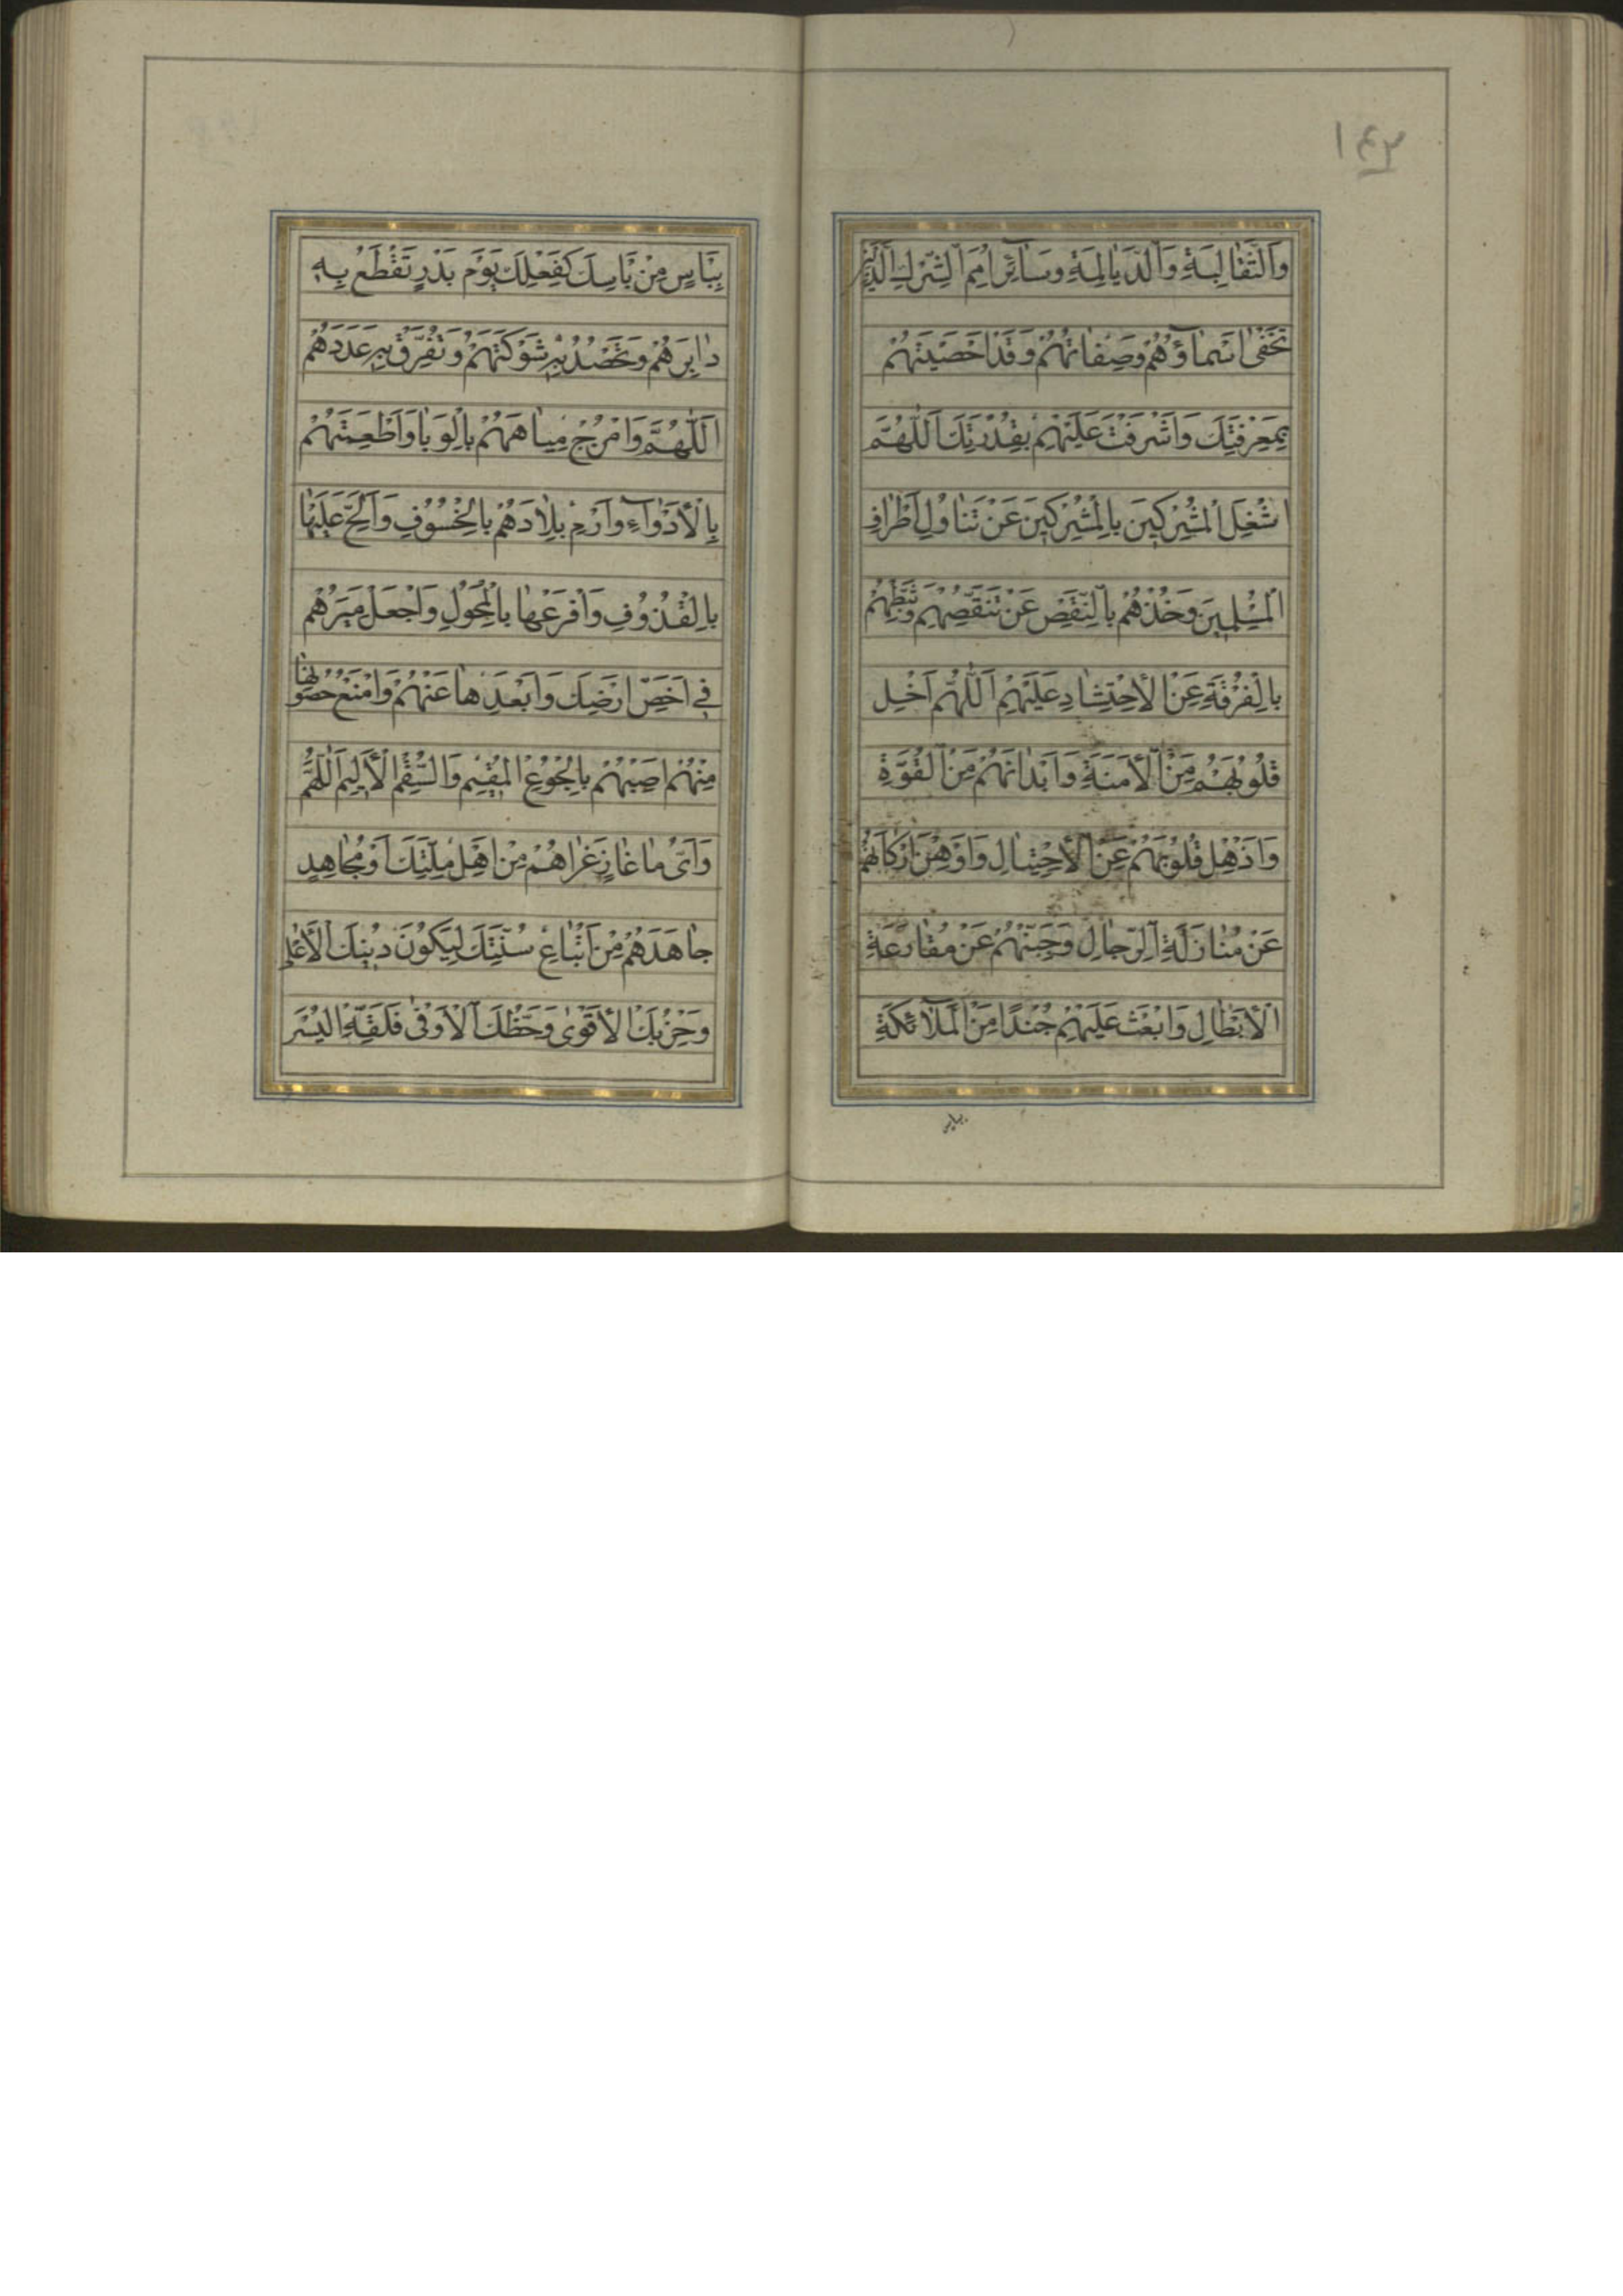 ١٤٣
وَالسَّقَالِبَةِ وَالدَّيَالِمَةِ وَسَائِرِ اُمَمِ الشِّرْكِ الَّذِينَ
تَخْفَى اَسْمَاؤُهُمْ وَصِفَاتُهُمْ وَقَدْ اَحْصَيْتَهُمْ
بِمَعْرِفَتِكَ وَاَشْرَفْتَ عَلَيْهِمْ بِقُدْرَتِكَ اَللّٰهُمَّ
اشْغَلِ الْمُشْرِكِينَ بِالْمُشْرِكِينَ عَنْ تَنَاوُلِ اَطْرَافِ
الْمُسْلِمِينَ وَخُذْهُمْ بِالنَّقْصِ عَنْ تَنَقُّصِهِمْ وَثَبِّطْهُمْ
بِالْفُرْقَةِ عَنِ الْاِحْتِشَادِ عَلَيْهِمْ اَللّٰهُمَّ اَخْلِ
قُلُوبَهُمْ مِنَ الْاَمَنَةِ وَاَبْدَانَهُمْ مِنَ الْقُوَّةِ
وَاَذْهِلْ قُلُوبَهُمْ عَنِ الْاِحْتِيَالِ وَاَوْهِنْ اَرْكَانَهُمْ
عَنْ مُنَازَلَةِ الرِّجَالِ وَجَبِّنْهُمْ عَنْ مُقَارَعَةِ
الْاَبْطَالِ وَابْعَثْ عَلَيْهِمْ جُنْدًا مِنَ الْمَلَائِكَةِ
بِبَاْسٍ مِنْ بَاْسِكَ كَفِعْلِكَ يَوْمَ بَدْرٍ تَقْطَعُ بِهِ
دَابِرَهُمْ وَتَحْصُدُ بِهِ شَوْكَتَهُمْ وَتُفَرِّقُ بِهِ عَدَدَهُمْ
اَللّٰهُمَّ وَامْزُجْ مِيَاهَهُمْ بِالْوَبَا وَاَطْعِمَتَهُمْ
بِالْاَدْوَاءِ وَارْمِ بِلَادَهُمْ بِالْخُسُوفِ وَاَلِحَّ عَلَيْهَا
بِالْقُذُوفِ وَافْرَعْهَا بِالْمُحُولِ وَاجْعَلْ مِيَرَهُمْ
فِي اَحَصِّ اَرْضِكَ وَاَبْعَدِهَا عَنْهُمْ وَامْنَعْ حُصُونَهَا
مِنْهُمْ اَصِبْهُمْ بِالْجُوعِ الْمُقِيمِ وَالسُّقْمِ الْاَلِيمِ اَللّٰهُمَّ
وَاَيُّمَا غَازٍ غَزَاهُمْ مِنْ اَهْلِ مِلَّتِكَ اَوْ مُجَاهِدٍ
جَاهَدَهُمْ مِنْ اَتْبَاعِ سُنَّتِكَ لِيَكُونَ دِينُكَ الْاَعْلَى
وَحِزْبُكَ الْاَقْوٰى وَحَظُّكَ الْاَوْفٰى فَلَقِّهِ الْيُسْرَ